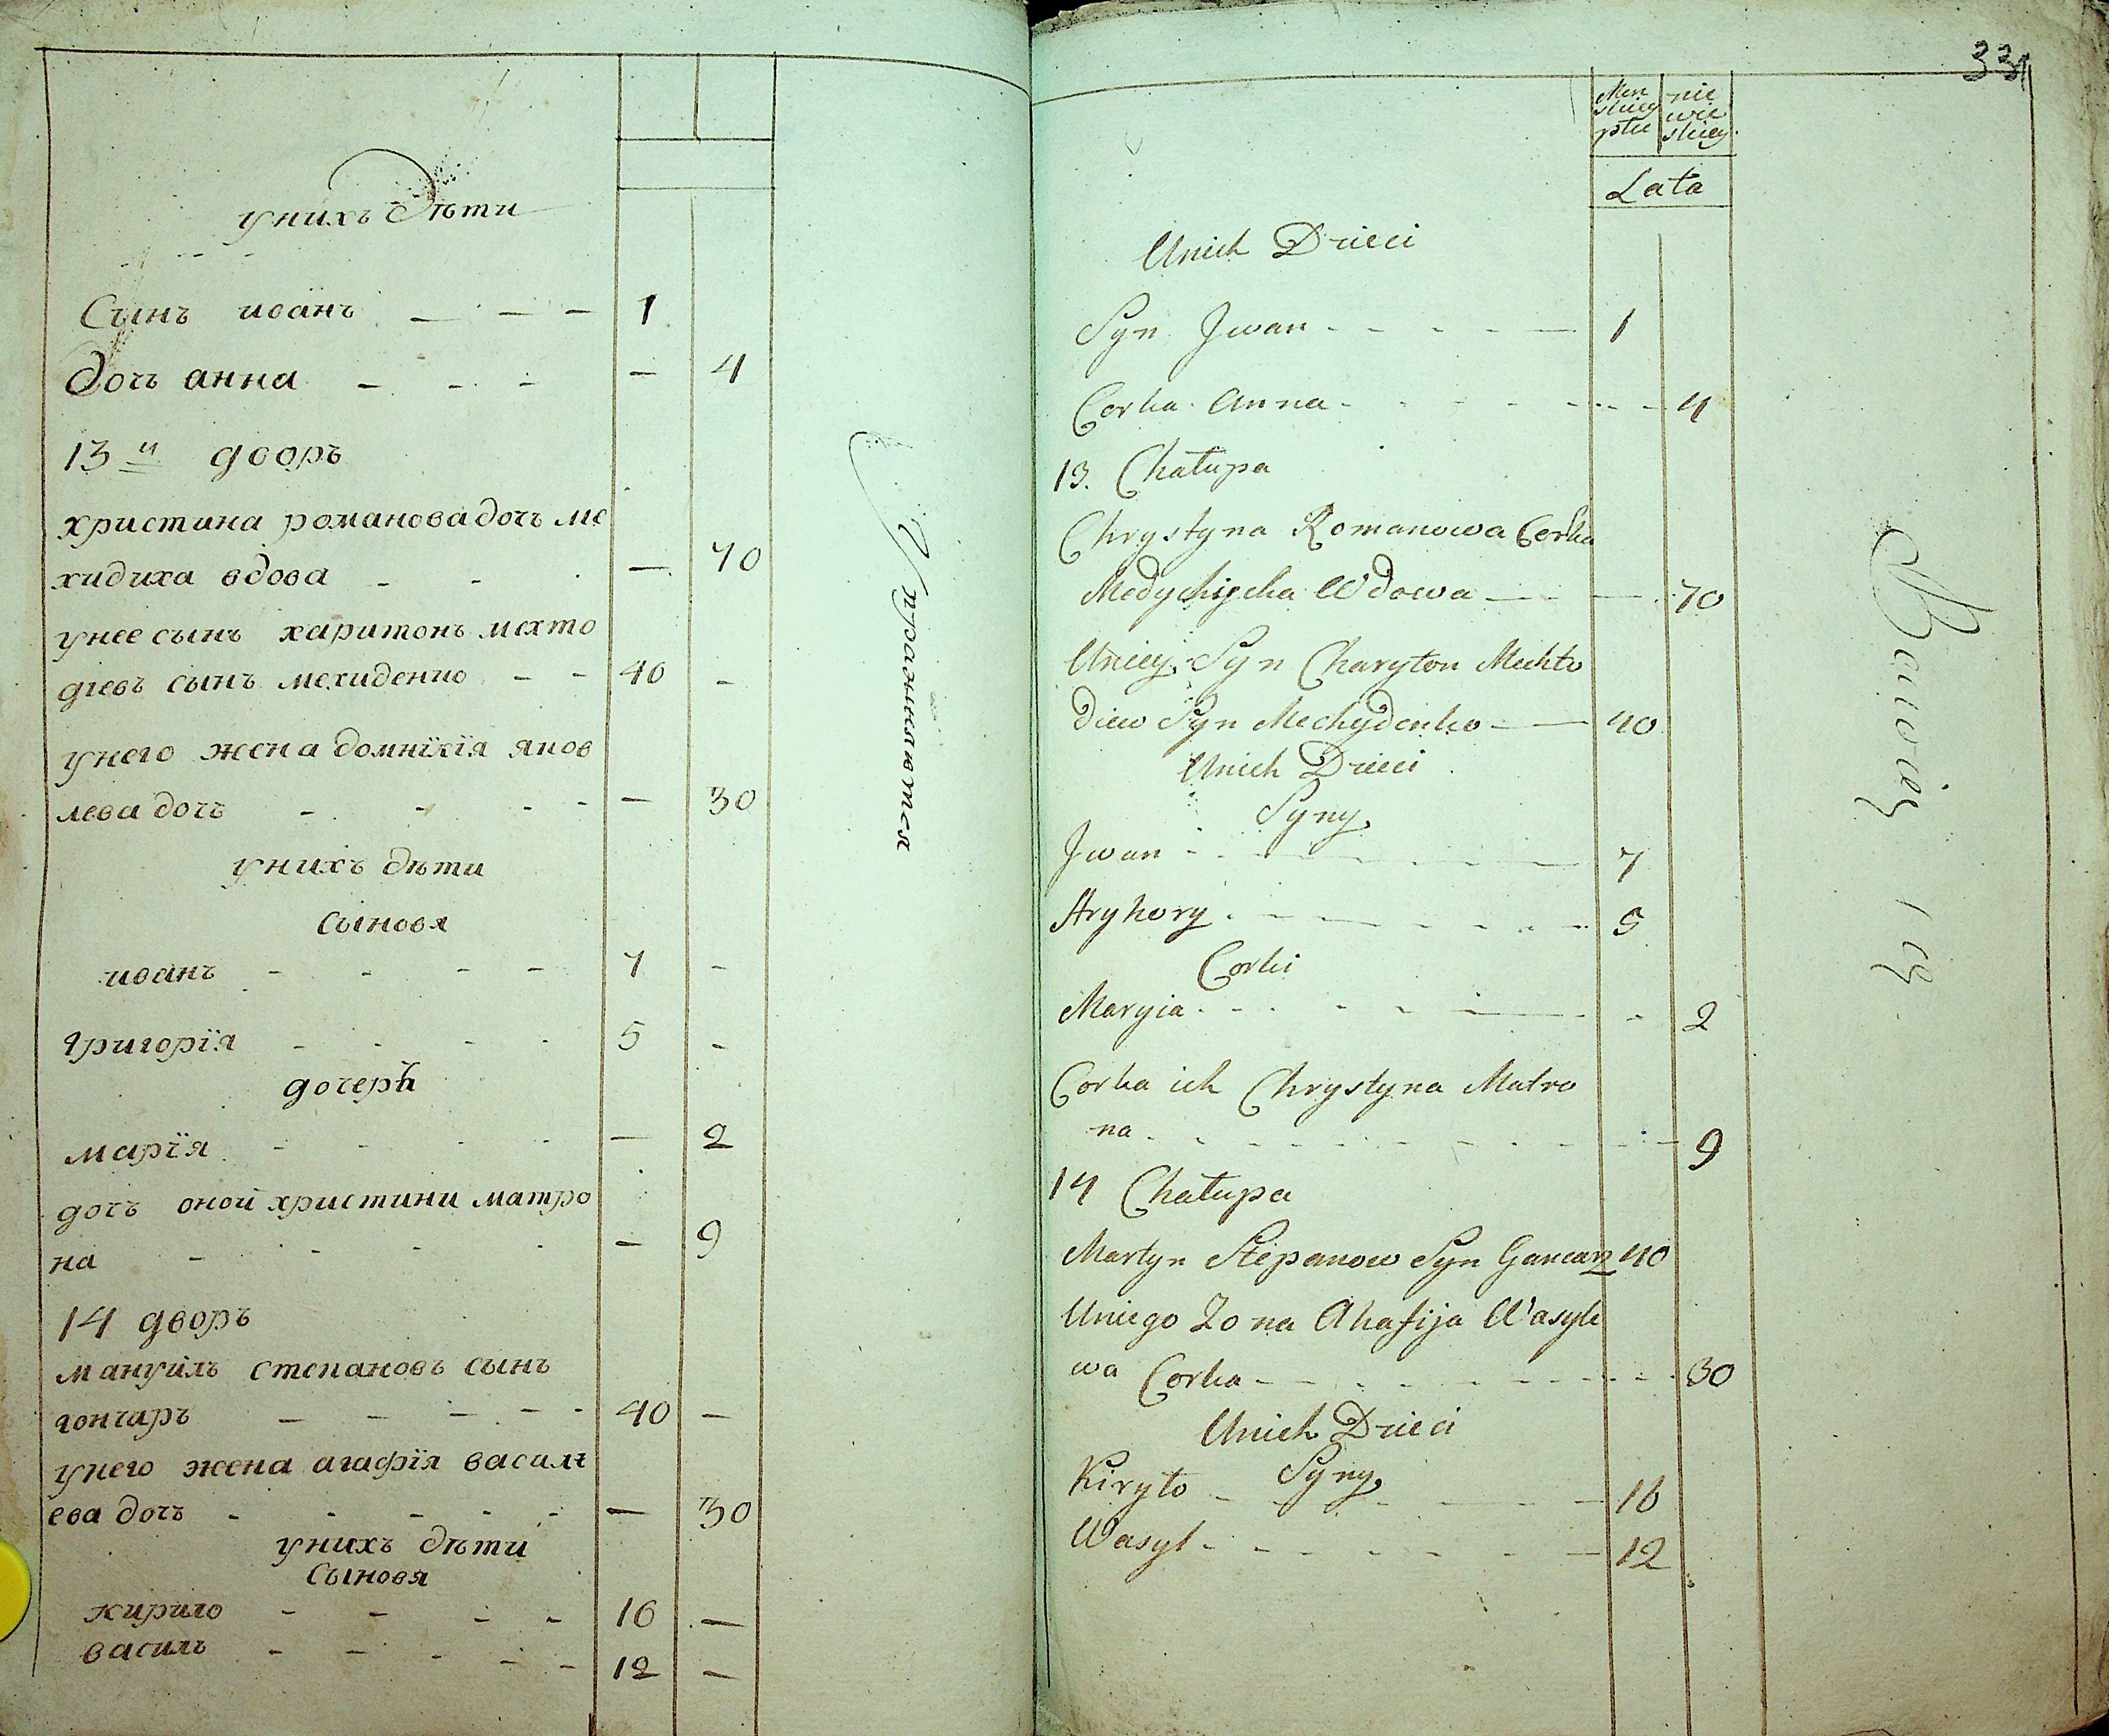 унихъ дѣти
Сынъ иванъ — — — 1
дочъ анна — — — — 4
13й дворъ
христина романова дочъ ме
хидиха вдова — — — 70
унее сынъ харитонъ мехто
діевъ сынъ мехиденко — — 40 —
унего жена домнікія яков
лева дочъ — — — — — 30
унихъ дѣти
сыновя
иванъ — — — — 7 —
григорія — — — — 5 —
дочерѣ
марїя — — — — — 2
дочъ оной христини матро
на — — — — — 9
14 дворъ
мануилъ степановъ сынъ
гончаръ — — — — — 40 —
унего жена агафїя василе
ева дочъ — — — — — — 30
унихъ дѣти
Сыновя
кирило — — — — 16 —
василъ — — — — — 12 —
упражняется
331
Men
skiey
płci
nie
wie
skiey
Lata
Unich Dzieci
Syn Jwan — — — — 1
Corka Anna — — — — 4
13. Chałupa
Chrystyna Romanowa Corka
Medychycha Wdowa — — — 70
Uniey Syn Charyton Mechto
diew Syn Mechydenko — 40
Unich Dzieci
Syny
Jwan — — — — — 7
Hryhory — — — — — 5
Corki
Maryia — — — — — — 2
Corka ich Chrystyna Matro
na — — — — — — 9
14 Chałupa
Martyn Stepanow Syn Gancarz 40
Uniego Zona Ahafija Wasyle
wa Corka — — — — — 30
Unich Dzieci
Syny
Kiryło — — — — — 16
Wasyl — — — — — 12